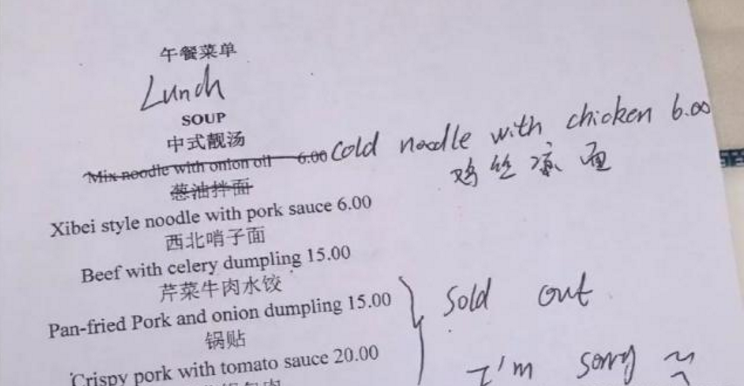 午餐菜单
Lunch
SOUP
中式靓汤
Mix noodle with onion oil 6.00 Cold noodle with chicken 6.00
葱油拌面 鸡丝凉面
Xibei style noodle with pork sauce 6.00
西北哨子面
Beef with celery dumpling 15.00
芹菜牛肉水饺
Pan-fried Pork and onion dumpling 15.00 Sold out
锅贴
Crispy pork with tomato sauce 20.00 I'm sorry ~